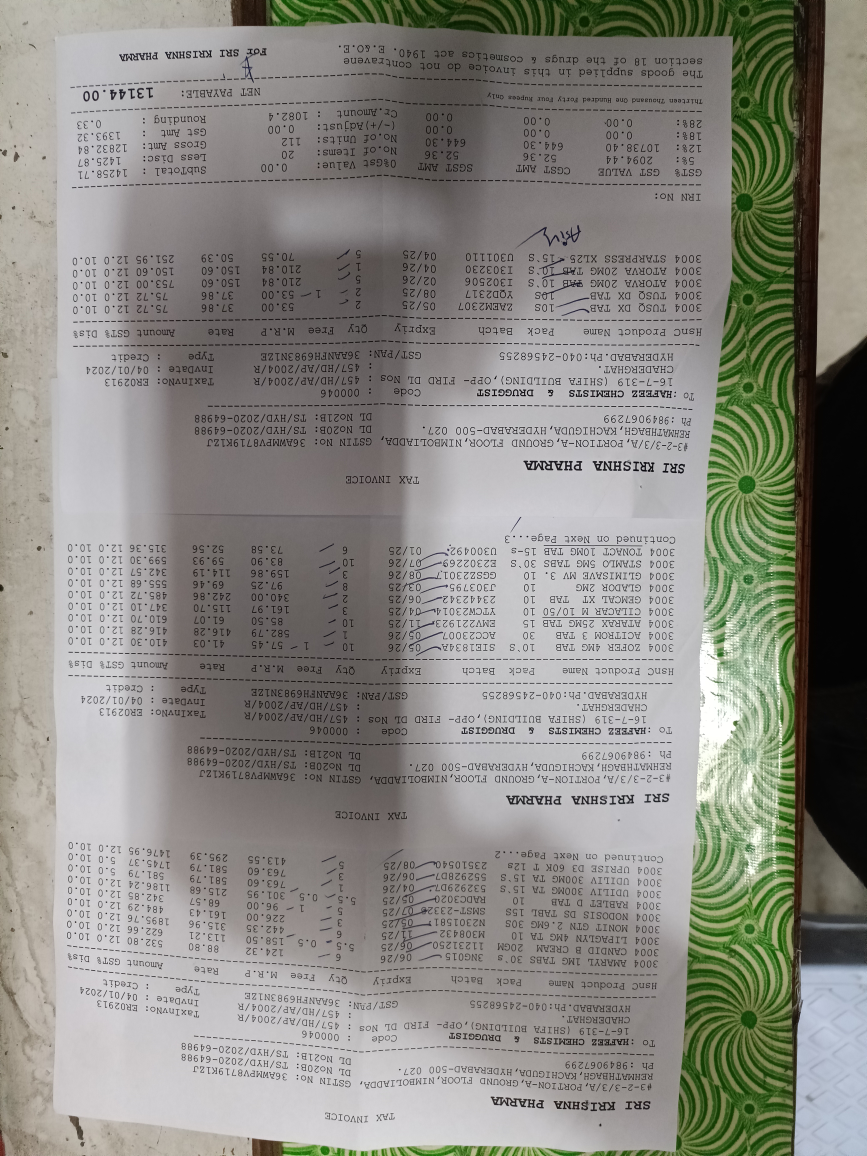 TAX INVOICE
SRI KRISHNA PHARMA
#3-2-3/3/A, PORTION-A, GROUND FLOOR, NIMBOLIADDA, GSTIN No: 36AWMPV8719K1ZJ
REHMATHBAGH, KACHIGUDA, HYDERABAD-500 027. DL No20B: TS/HYD/2020-64988
Ph :9849067299 DL No21B: TS/HYD/2020-64988
To :HAFEEZ CHEMISTS & DRUGGIST Code : 000046 TaxInvNo: ER02913
16-7-319 (SHIFA BUILDING), OPP- FIRD DL Nos : 457/HD/AP/2004/R InvDate : 04/01/2024
CHADERGHAT. : 457/HD/AP/2004/R Type : Credit
HYDERABAD.Ph:040-24568255 GST/PAN: 36AANFH6983N1ZE
Hsnc Product Name Pack Batch Expriy Qty Free M.R.P Rate Amount GST% Dis%
3004 AMARYL 1MG TABS 30's 3NG015 06/26 6 124.32 88.80 532.80 12.0 10.0
3004 CANDID B CREAM 20GM 11231250 06/25 5.5 0.5 158.50 113.21 622.66 12.0 10.0
3004 LIPAGLYN 4MG TA 10 M308432 11/25 6 442.35 315.96 1895.76 12.0 10.0
3004 MONIT GTN 2.6MG 30S N2301581 05/25 3 226.00 161.43 484.29 12.0 10.0
3004 NODOSIS DS TABL 15S SNST-2332B 07/25 5 1 96.00 68.57 342.85 12.0 10.0
3004 RABLET D TAB 10 RADC3020 05/25 5.5 0.5 301.95 215.68 1186.24 12.0 10.0
3004 UDILIV 300MG TA 15'S 5329269D7 04/26 1 763.60 581.79 581.79 5.0 10.0
3004 UDILIV 300MG TA 15'S 5529282D7 06/26 3 763.60 581.79 1745.37 5.0 10.0
3004 UPRISE D3 60K T 12s 23510540 08/25 5 413.55 295.39 1476.95 12.0 10.0
Continued on Next Page...2
TAX INVOICE
SRI KRISHNA PHARMA
#3-2-3/3/A, PORTION-A, GROUND FLOOR, NIMBOLIADDA, GSTIN No: 36AWMPV8719K1ZJ
REHMATHBAGH, KACHIGUDA, HYDERABAD-500 027. DL No20B: TS/HYD/2020-64988
Ph :9849067299 DL No21B: TS/HYD/2020-64988
To :HAFEEZ CHEMISTS & DRUGGIST Code : 000046 TaxInvNo: ER02913
16-7-319 (SHIFA BUILDING), OPP- FIRD DL Nos : 457/HD/AP/2004/R InvDate : 04/01/2024
CHADERGHAT. : 457/HD/AP/2004/R Type : Credit
HYDERABAD.Ph:040-24568255 GST/PAN: 36AANFH6983N1ZE
Hsnc Product Name Pack Batch Expriy Qty Free M.R.P Rate Amount GST% Dis%
3004 ZOFER 4MG TAB 10'S SIE1834A 05/26 10 1 57.45 41.03 410.30 12.0 10.0
3004 ACITROM 3 TAB 30 ACC23007 05/26 1 582.79 416.28 416.28 12.0 10.0
3004 ATARAX 25MG TAB 15 EMV221923 11/25 10 85.50 61.07 610.70 12.0 10.0
3004 CILACAR M 10/50 10 YTCW23014 04/25 3 161.97 115.70 347.10 12.0 10.0
3004 GEMCAL XT TAB 10 23442342 06/25 2 340.00 242.86 485.72 12.0 10.0
3004 GLADOR 2MG 10 J300395 03/25 8 97.25 69.46 555.68 12.0 10.0
3004 GLIMISAVE MV 3. 10 GGSZ23017 08/26 3 159.86 114.19 342.57 12.0 10.0
3004 STAMLO 5MG TABS 30'S E2302269 07/26 10 83.90 59.93 599.30 12.0 10.0
3004 TONACT 10MG TAB 15-s U300492 01/25 6 73.58 52.56 315.36 12.0 10.0
Continued on Next Page...3
TAX INVOICE
SRI KRISHNA PHARMA
#3-2-3/3/A, PORTION-A, GROUND FLOOR, NIMBOLIADDA, GSTIN No: 36AWMPV8719K1ZJ
REHMATHBAGH, KACHIGUDA, HYDERABAD-500 027. DL No20B: TS/HYD/2020-64988
Ph :9849067299 DL No21B: TS/HYD/2020-64988
To :HAFEEZ CHEMISTS & DRUGGIST Code : 000046 TaxInvNo: ER02913
16-7-319 (SHIFA BUILDING), OPP- FIRD DL Nos : 457/HD/AP/2004/R InvDate : 04/01/2024
CHADERGHAT. : 457/HD/AP/2004/R Type : Credit
HYDERABAD.Ph:040-24568255 GST/PAN: 36AANFH6983N1ZE
Hsnc Product Name Pack Batch Expriy Qty Free M.R.P Rate Amount GST% Dis%
3004 TUSQ DX TAB 10s ZAEM2307 05/25 2 53.00 37.86 75.72 12.0 10.0
3004 TUSQ DX TAB 10s YDQY2317 08/25 2 1 53.00 37.86 75.72 12.0 10.0
3004 ATORVA 20MG TAB 10'S I302506 02/26 5 210.84 150.60 753.00 12.0 10.0
3004 ATORVA 20MG TAB 10'S I303230 04/26 1 210.84 150.60 150.60 12.0 10.0
3004 STARPRESS XL25 15'S U301110 04/25 5 70.55 50.39 251.95 12.0 10.0
IRN No:
GST% GST VALUE CGST AMT SGST AMT 0%Gst Value: 0.00 SubTotal : 14258.71
5%: 2094.44 52.36 52.36 No.of Items: 20 Less Disc: 1425.87
12%: 10738.40 644.30 644.30 No.of Units: 112 Gross Amt : 12832.84
18%: 0.00 0.00 0.00 (-/+)Adjust: 0.00 Gst Amt : 1393.32
28%: 0.00 0.00 0.00 Cr.Amount : 1082.4 Rounding : 0.33
Thirteen Thousand One Hundred Forty Four Rupees Only NET PAYABLE: 13144.00
The goods supplied in this invoice do not contravene
section 18 of the drugs & cosmetics act 1940. E.&O.E. For SRI KRISHNA PHARMA